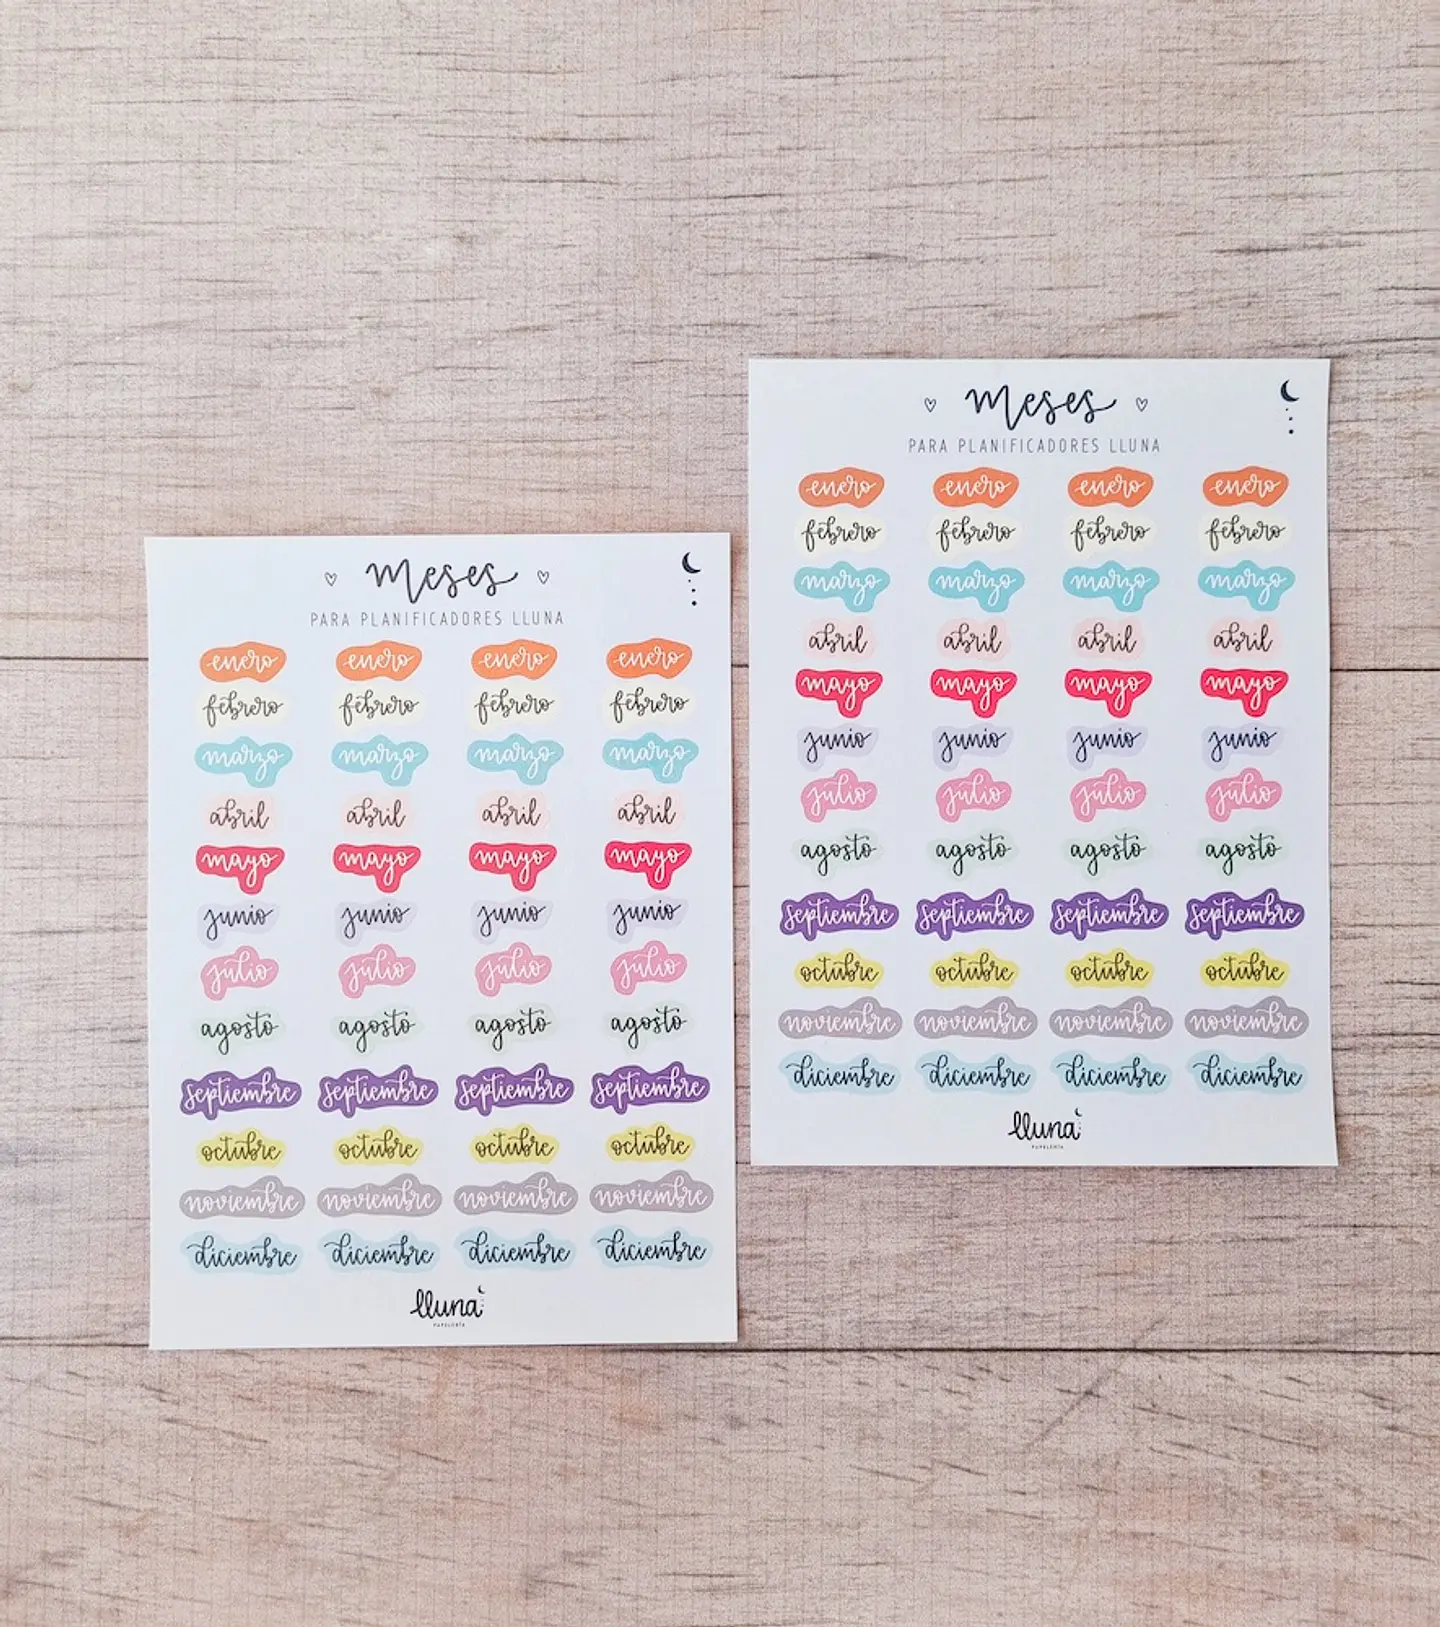 meses
PARA PLANIFICADORES LLUNA
enero enero enero enero
febrero febrero febrero febrero
marzo marzo marzo marzo
abril abril abril abril
mayo mayo mayo mayo
junio junio junio junio
julio julio julio julio
agosto agosto agosto agosto
septiembre septiembre septiembre septiembre
octubre octubre octubre octubre
noviembre noviembre noviembre noviembre
diciembre diciembre diciembre diciembre
lluna
PAPELERÍA
meses
PARA PLANIFICADORES LLUNA
enero enero enero enero
febrero febrero febrero febrero
marzo marzo marzo marzo
abril abril abril abril
mayo mayo mayo mayo
junio junio junio junio
julio julio julio julio
agosto agosto agosto agosto
septiembre septiembre septiembre septiembre
octubre octubre octubre octubre
noviembre noviembre noviembre noviembre
diciembre diciembre diciembre diciembre
lluna
PAPELERÍA